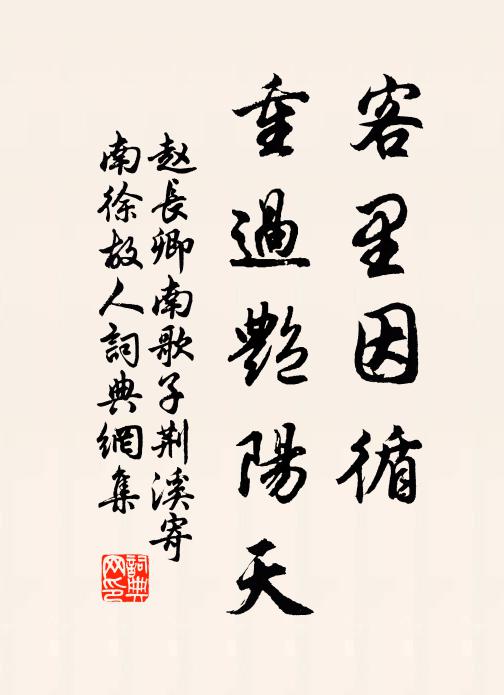 客里因循
重過艷陽天
赵長卿南歌子荆溪寄
南徐故人詞典網集
詞典
网印